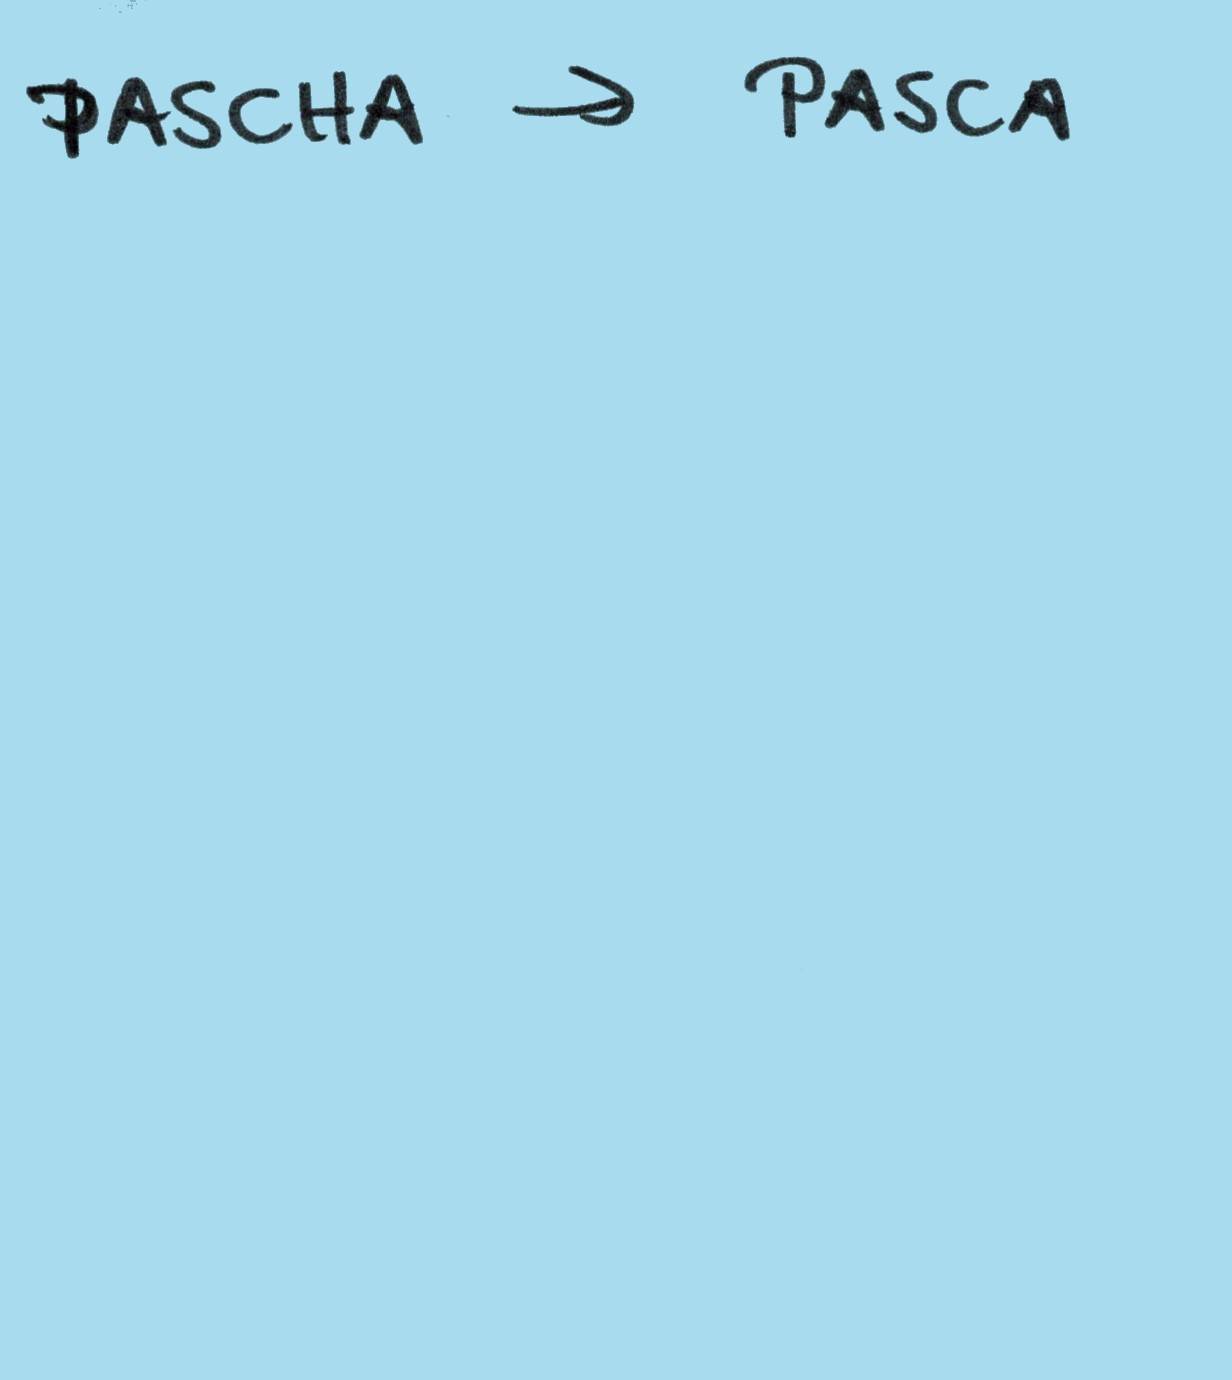 PASCHA → PASCA